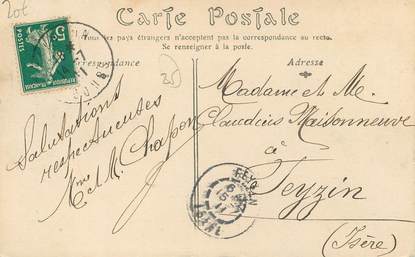 20f
Carte Postale
Tous les pays étrangers n'acceptent pas la correspondance au recto.
Se renseigner à la poste.
Correspondance
Adresse
5c
POSTES
REPUBLIQUE FRANÇAISE
Salutations
respectueuses
Mme et M. Chapon
Madame et M.
Claudius Maisonneuve
à
Feyzin
(Isère)
FEYZIN
ISÈRE